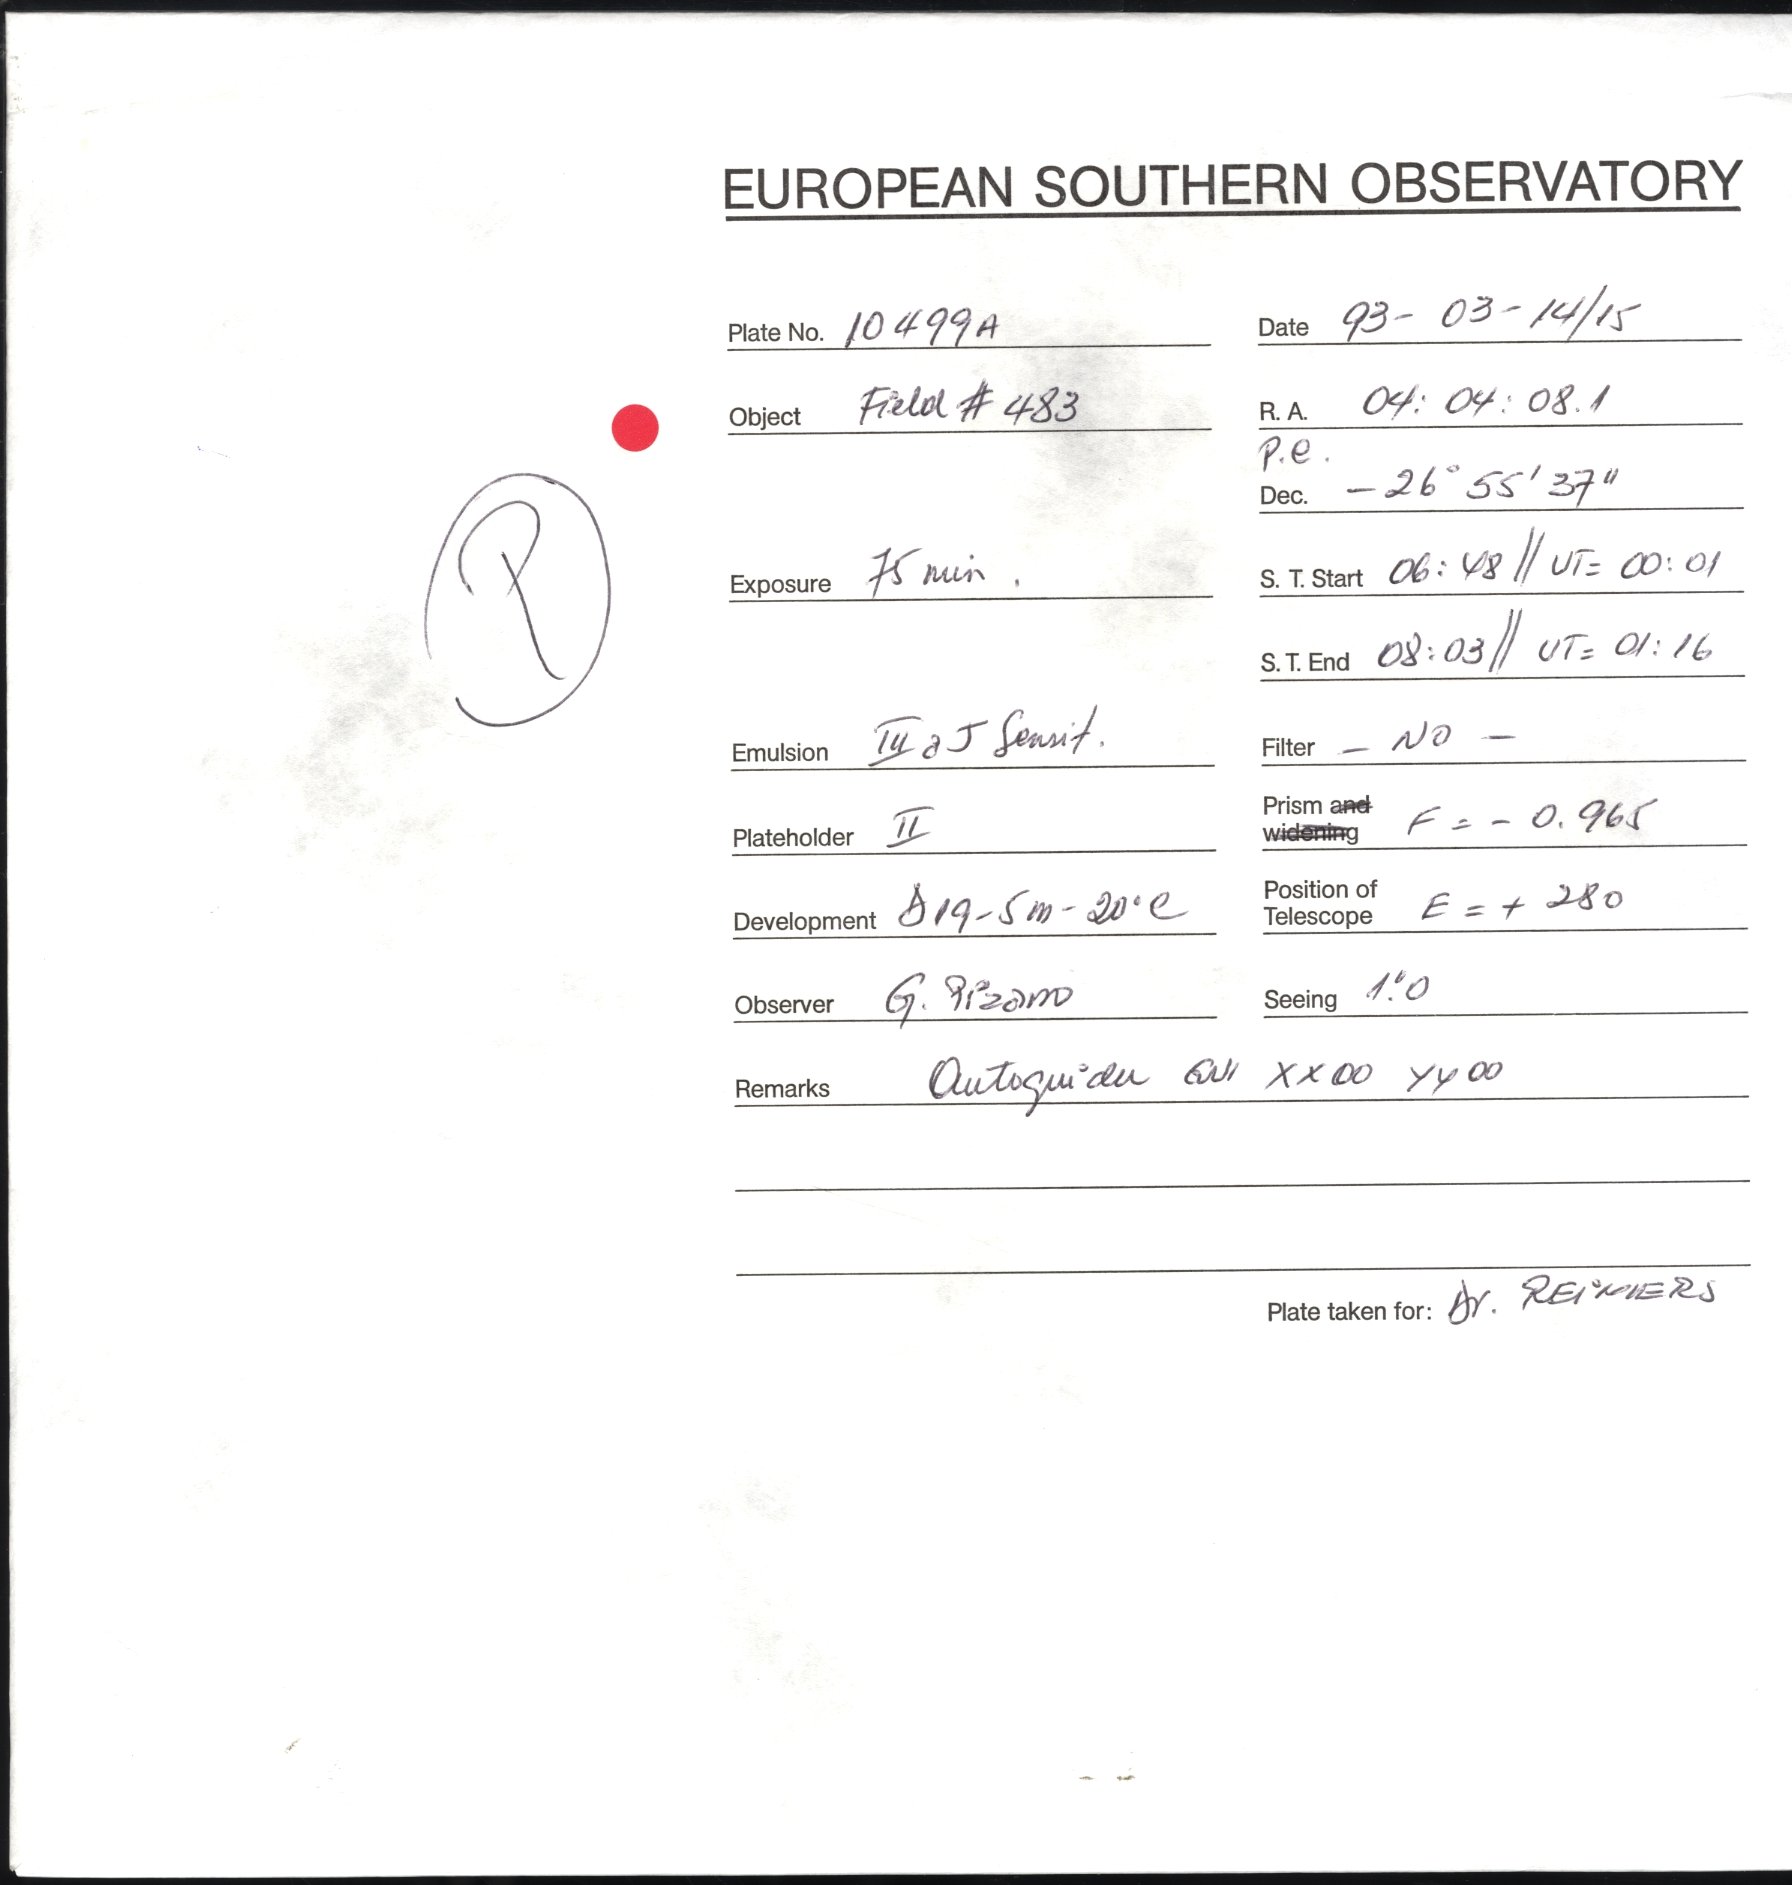 EUROPEAN SOUTHERN OBSERVATORY
Plate No. 10499A
Date 93-03-14/15
Object Field # 483
R. A. 04: 04: 08.1
P.e.
Dec. - 26° 55' 37"
P
Exposure 75 min.
S. T. Start 06:48 // UT= 00:01
S. T. End 08:03 // UT= 01:16
Emulsion III a J Sensit.
Filter - NO -
Plateholder II
Prism and
widening F = - 0.965
Development D19-5m-20°C
Position of
Telescope E = + 280
Observer G. Pizarro
Seeing 1."0
Remarks Autoguider XX00 YY00
Plate taken for: Dr. REIMERS